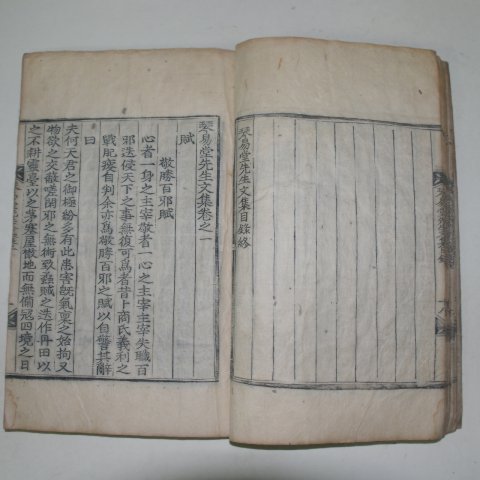 琴易堂先生文集目錄終
琴易堂先生文集卷之一
賦
敬勝百邪賦
心者一身之主宰敬者一心之主宰主宰失職百
邪迭侵天下之事無復可爲者昔卜商氏義利之
戰肥癯自判余亦爲敬勝百邪之賦以自警其辭
曰
夫何天君之御極紛多有此患害旣氣稟之始拘又
物欲之交蔽嗟閑邪之無術致蟊賊之迭作弗田以
之不耕靈臺以之茅塞屋倣地而無備寇四境之日